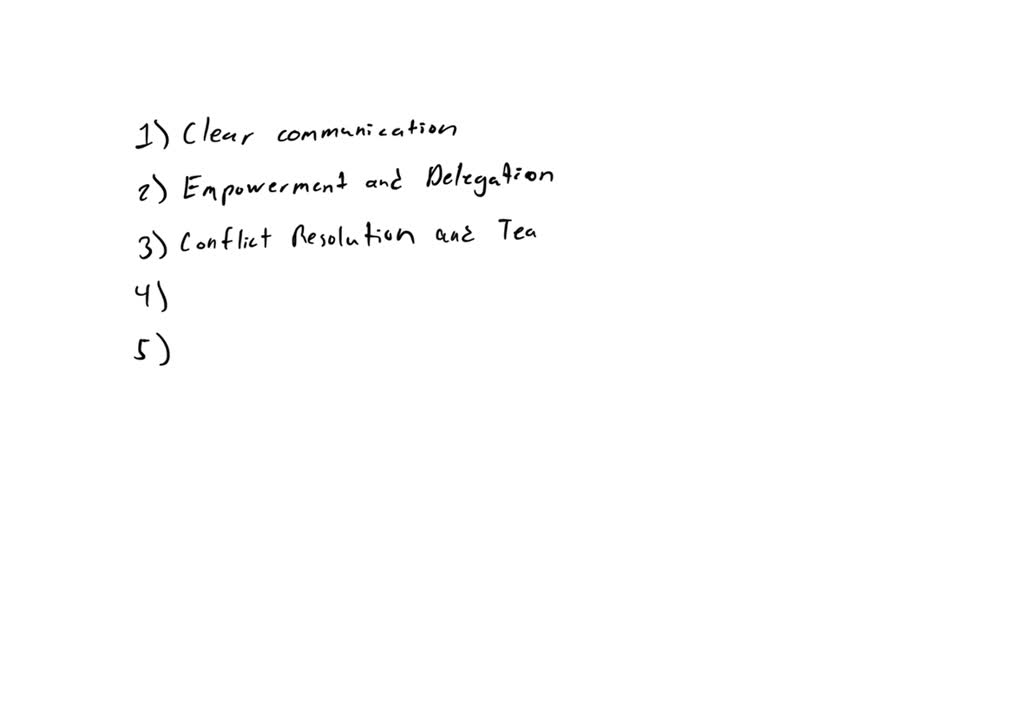 1) Clear communication
2) Empowerment and Delegation
3) Conflict Resolution and Tea
4)
5)